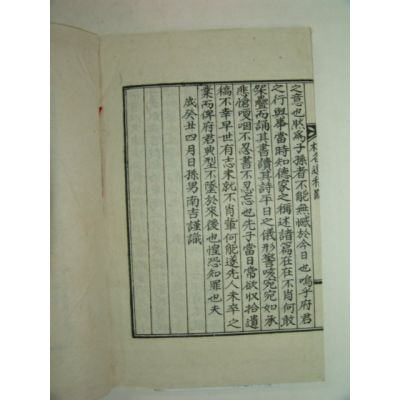 之意也狀爲子孫者不能無憾於今日也嗚乎府君
之行與事當時知德家之稱述諸篇在在不肖何敢
架疊而誦其書讀其詩平日之儀形警咳宛宛如承
悲愴哽咽不忍書不忍忘也先子當日常欲收拾遺
稿不幸早世有志未就不肖輩何能遂先人未卒之
業而俾府君典型不墜於來後也惶恐知罪也夫
歲癸丑四月日孫男南吉謹識